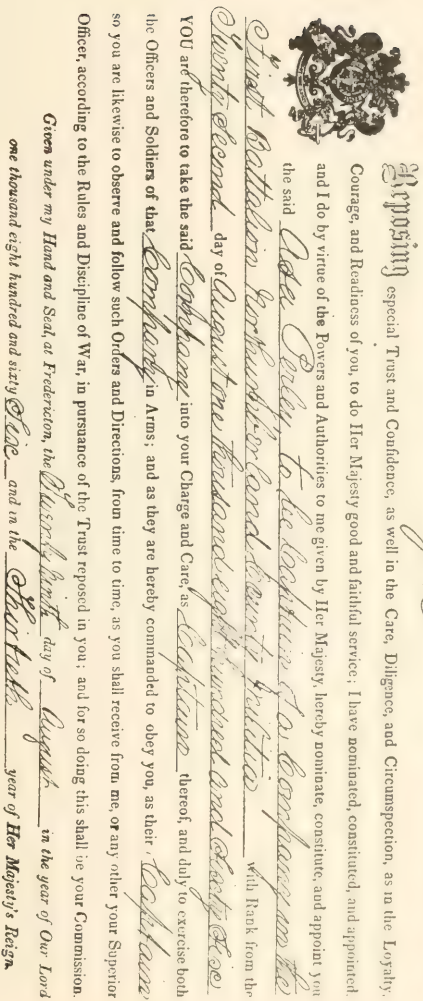 Reposing especial Trust and Confidence, as well in the Care, Diligence, and Circumspection, as in the Loyalty,
Courage, and Readiness of you, to do Her Majesty good and faithful service; I have nominated, constituted, and appointed
and I do by virtue of the Powers and Authorities to me given by Her Majesty, hereby nominate, constitute, and appoint you
the said Asa Perley to be Captain of a Company in the
First Battalion Northumberland County Militia with Rank from the
Twenty Second day of August one thousand eight hundred and sixty Six
YOU are therefore to take the said Company into your Charge and Care, as Captain thereof, and duly to exercise both
the Officers and Soldiers of that Company in Arms; and as they are hereby commanded to obey you, as their Captain
so you are likewise to observe and follow such Orders and Directions, from time to time, as you shall receive from me, or any other your Superior
Officer, according to the Rules and Discipline of War, in pursuance of the Trust reposed in you; and for so doing this shall be your Commission.
Given under my Hand and Seal, at Fredericton, the Twenty Ninth day of August in the year of Our Lord
one thousand eight hundred and sixty Six and in the Thirtieth year of Her Majesty's Reign.